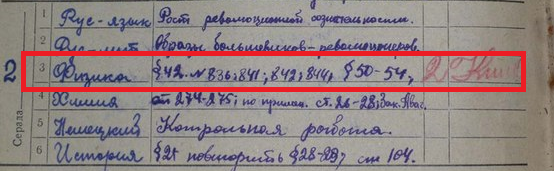 1 Рус-язык Рост революционной сознательности.
2 Рус-лит. Образы большевиков-революционеров.
2
3 Физика §42. № 836; 841; 842; 844; § 50-54, 2
4 Химия ст 274-275; по прилаг. ст. 26-28; Зак. Авог.
5 Немецкий Контрольная работа.
6 История §21 повторить § 28-29, ст 104.
Середа